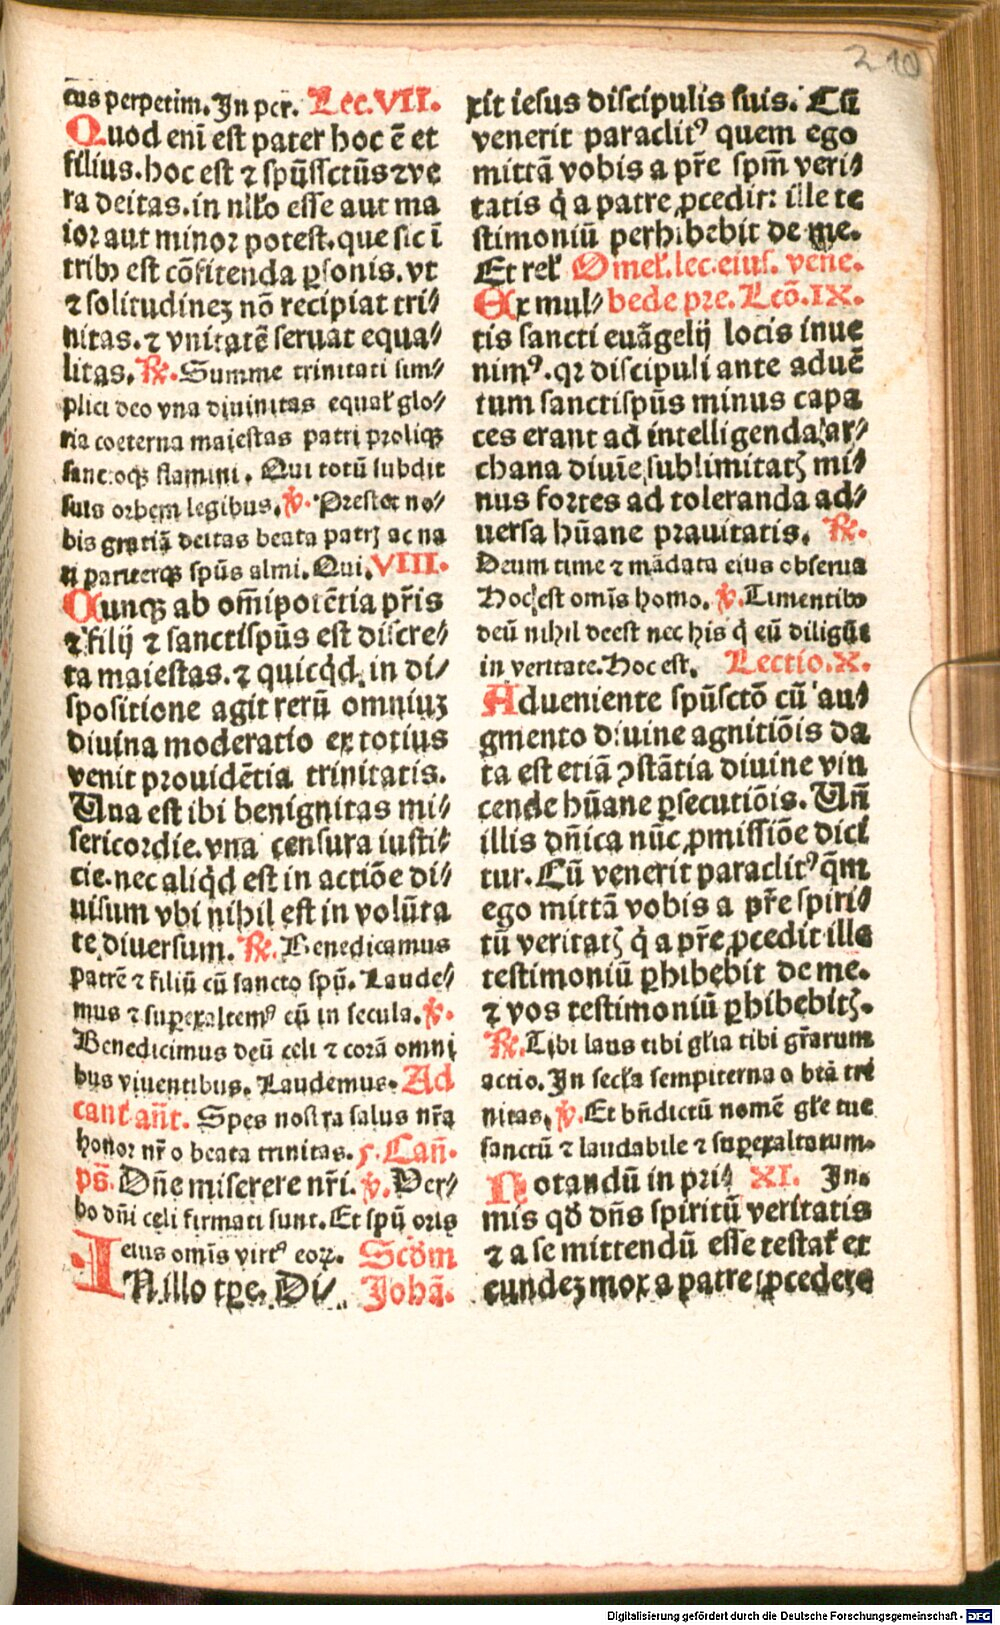 210
cus perpetim. In per. Lec. VII.
Quod eni̅ est pater hoc e̅ et
filius. hoc est ⁊ spu̅ssctu̅s ⁊ ve
ra deitas. in nłło esse aut ma
ior aut minor potest. que sic i̅
tribꝫ est co̅fitenda ꝑsonis. vt
⁊ solitudinez no̅ recipiat tri⸗
nitas. ⁊ vnitate̅ seruat equa⸗
litas. ℟. Summe trinitati sim⸗
plici deo vna diuinitas equał glo⸗
ria coeterna maiestas patri proliqꝫ
sanctoqꝫ flamini. Qui totu̅ subdit
suis orbem legibus. ℣. Prestet no⸗
bis gratia̅ deitas beata patrꝭ ac na
ti pariterqꝫ spu̅s almi. Qui. VIII.
Cunqꝫ ab om̅ipote̅tia pr̅is
⁊ filij ⁊ sanctispu̅s est discre⸗
ta maiestas. ⁊ quicq̇d in di⸗
spositione agit reru̅ omniuz
diuina moderatio ex totius
venit prouide̅tia trinitatis.
Una est ibi benignitas mi⸗
sericordie. vna censura iusti⸗
cie. nec aliq̇d est in actio̅e di⸗
uisum vbi nihil est in volu̅ta
te diuersum. ℟. Benedicamus
patre̅ ⁊ filiu̅ cu̅ sancto spu̅. Laude⸗
mus ⁊ suꝑexaltemꝰ eu̅ in secula. ℣.
Benedicimus deu̅ celi ⁊ cora̅ omni
bus viuentibus. Laudemus. Ad
cant an̅t. Spes nostra salus nr̅a
honor nr̅ o beata trinitas. ꝭ. Can̅.
ps̅. Dn̅e miserere nr̅i. ℣. Ver⸗
bo dn̅i celi firmati sunt. Et spu̅ oris
eius om̅is virtꝰ eoꝝ. Scd̅m
IN illo tꝑe. Di⸗ Joha̅.
xit iesus discipulis suis. Cu̅
venerit paraclitꝰ quem ego
mitta̅ vobis a pr̅e spm̅ veri⸗
tatis q̇ a patre ꝓcedit: ille te
stimoniu̅ perhibebit de me.
Et reł Omeł. lec. eius. vene.
Ex mul⸗ bede pre. Lco̅. IX.
tis sancti eua̅gelij locis inue
nimꝰ. qꝛ discipuli ante adue̅
tum sanctispu̅s minus capa
ces erant ad intelligenda ar⸗
chana diui̅e sublimitatꝭ mi⸗
nus fortes ad toleranda ad⸗
uersa hu̅ane prauitatis. ℟.
Deum time ⁊ ma̅data eius obserua
Hoc est om̅is homo. ℣. Timentibꝫ
deu̅ nihil deest nec his q̇ eu̅ diligu̅t
in veritate. Hoc est. Lectio. X.
Adueniente spu̅scto̅ cu̅ au⸗
gmento diuine agnitio̅is da
ta est etia̅ ꝯsta̅tia diuine vin
cende hu̅ane ꝑsecutio̅is. Un̅
illis dn̅ica nu̅c ꝓmissio̅e dici
tur. Cu̅ venerit paraclitꝰ q̅m
ego mitta̅ vobis a pr̅e spiri⸗
tu̅ veritatꝭ q̇ a pr̅e ꝓcedit ille
testimoniu̅ ꝑhibebit de me.
⁊ vos testimoniu̅ ꝑhibebitꝭ.
℟. Tibi laus tibi głia tibi gr̅arum
actio. In secła sempiterna o bta̅ tri
nitas. ℣. Et bn̅dictu̅ nome̅ głe tue
sanctu̅ ⁊ laudabile ⁊ suꝑexaltatum.
Notandu̅ in pri⸗ XI. In.
mis qđ dn̅s spiritu̅ veritatis
⁊ a se mittendu̅ esse testał et
eundez mox a patre ꝓcedere
Digitalisierung gefördert durch die Deutsche Forschungsgemeinschaft - DFG